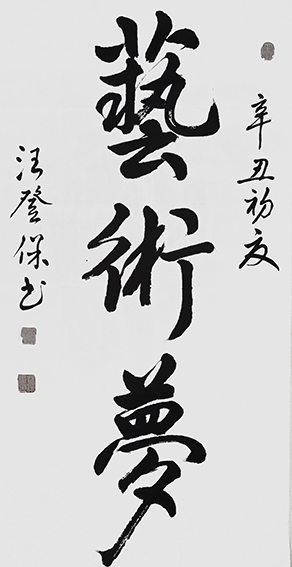 辛丑初夏
藝術夢
汪登保书